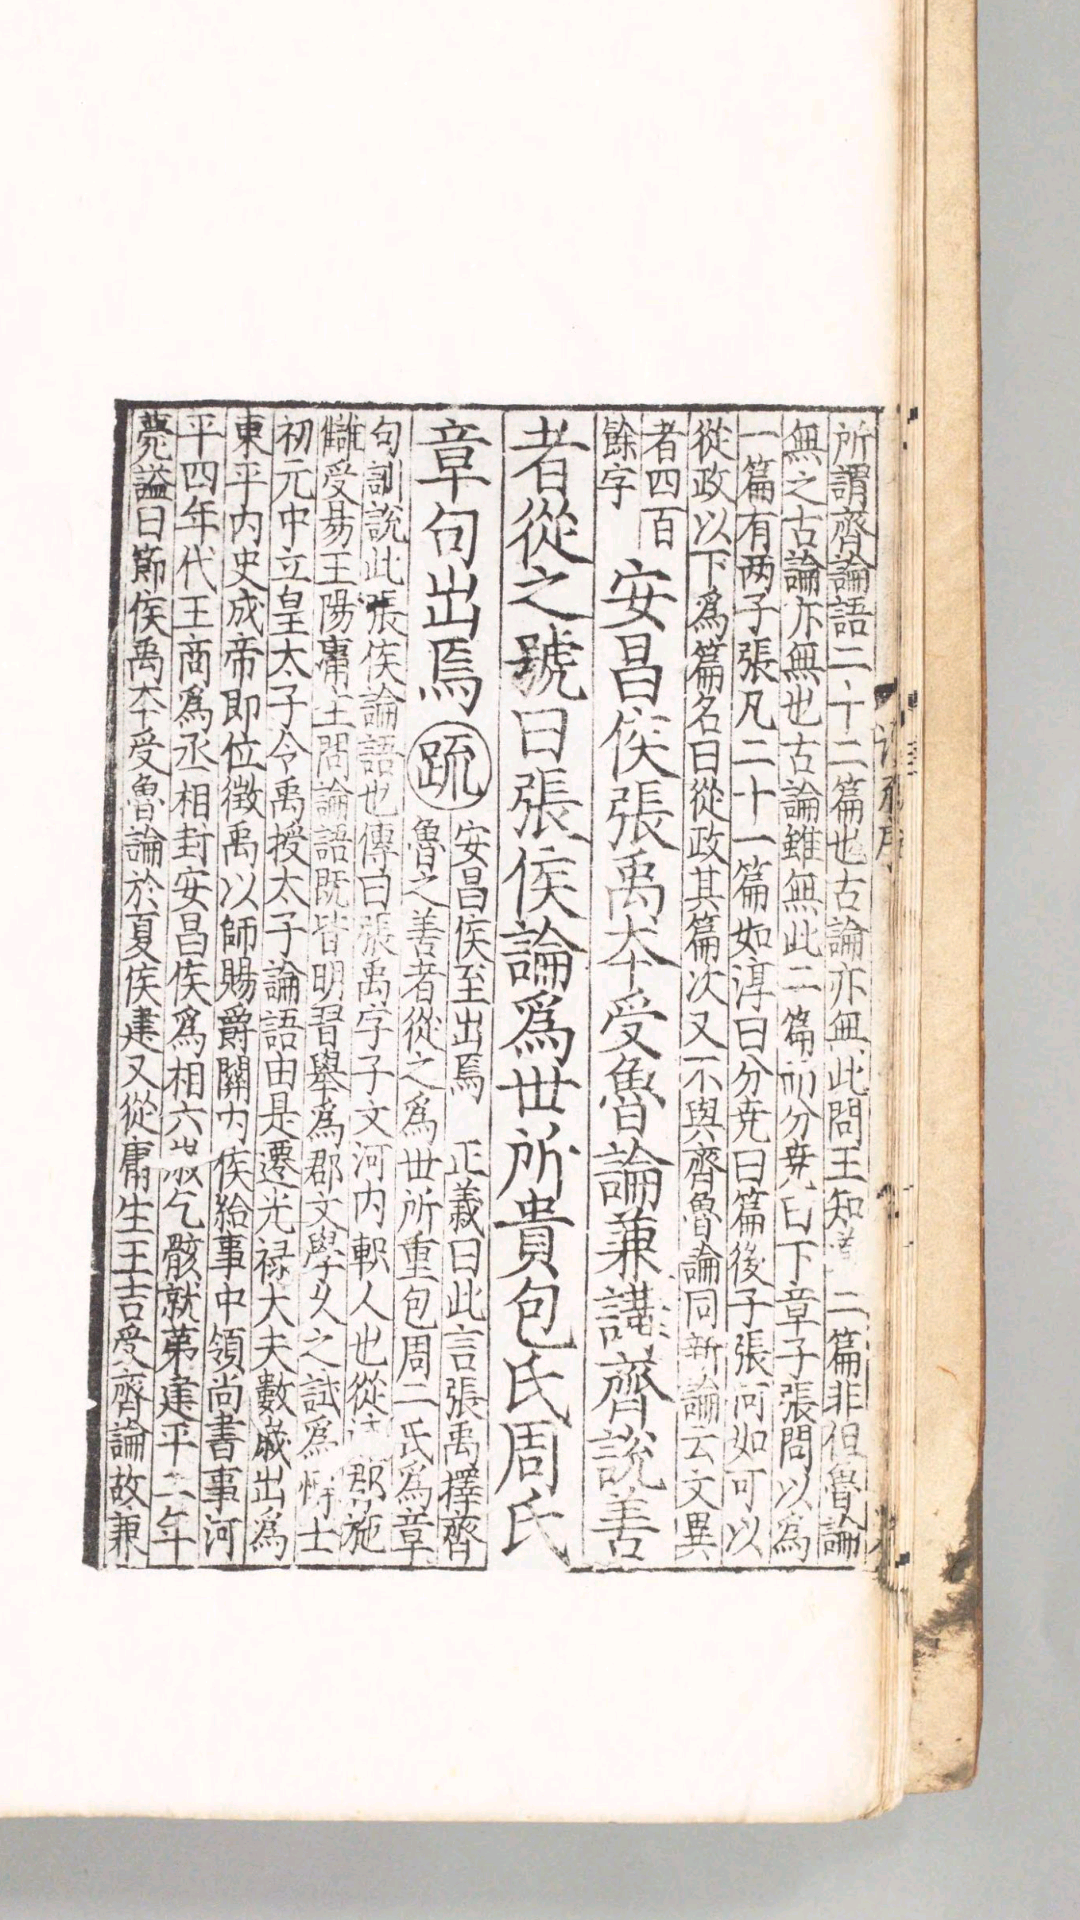 所謂齊論語二十二篇也古論亦無此問王知道二篇非但魯論
無之古論亦無也古論雖無此二篇而分堯曰下章子張問以為
一篇有两子張凡二十一篇如淳曰分堯曰篇後子張問何如可以
從政以下爲篇名曰從政其篇次又不與齊魯論同新論云文異
者四百
餘字
安昌侯張禹本受魯論兼講齊說善
者從之號曰張侯論爲世所貴包氏周氏
章句出焉
疏
安昌侯至出焉 正義曰此言張禹擇齊
魯之善者從之爲世所重包周二氏爲章
句訓說此張侯論語也傳曰張禹字子文河内軹人也從 郡施
讎受易王陽庸生問論語既皆明習舉爲郡文學久之試爲博士
初元中立皇太子令禹授太子論語由是遷光禄大夫數歲出爲
東平内史成帝即位徵禹以師賜爵關内侯給事中領尚書事河
平四年代王商爲丞相封安昌侯爲相六歲乞骸就第建平二年
薨謚曰節侯禹本受魯論於夏侯建又從庸生王吉受齊論故兼